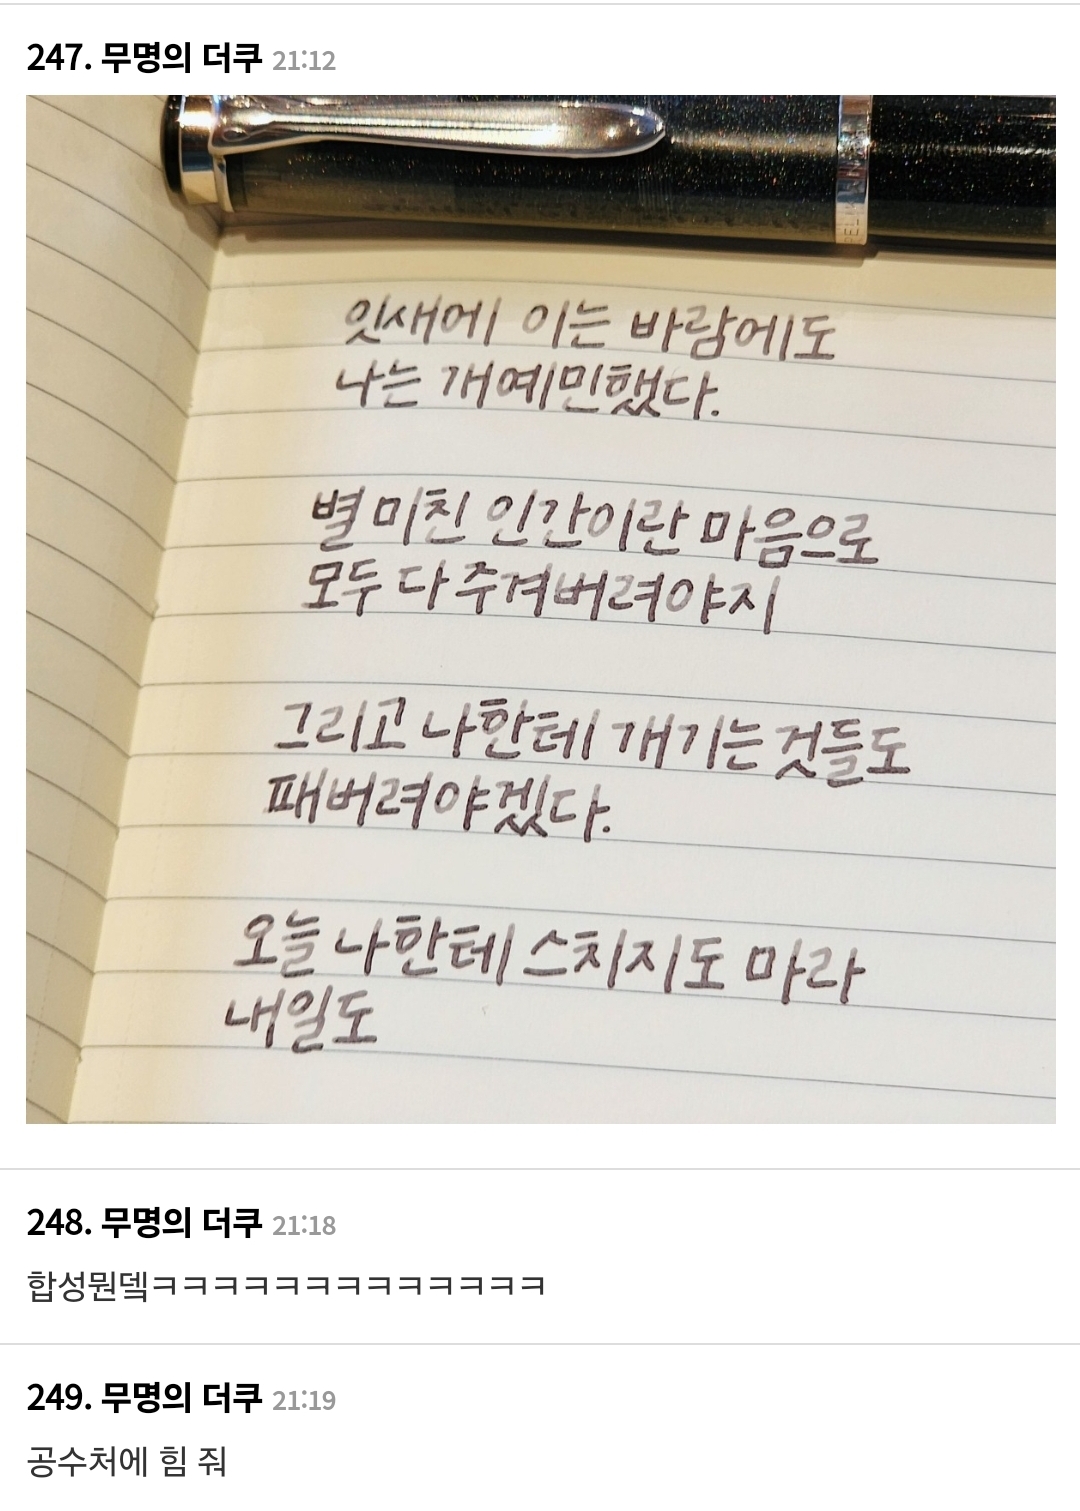 247. 무명의 더쿠 21:12
잇새에 이는 바람에도
나는 개예민했다.
별 미친 인간이란 마음으로
모두 다 주겨버려야지
그리고 나한테 개기는 것들도
패버려야겠다.
오늘 나한테 스치지도 마라
내일도
248. 무명의 더쿠 21:18
합성뭔뎈ㅋㅋㅋㅋㅋㅋㅋㅋㅋㅋㅋㅋㅋ
249. 무명의 더쿠 21:19
공수처에 힘 줘